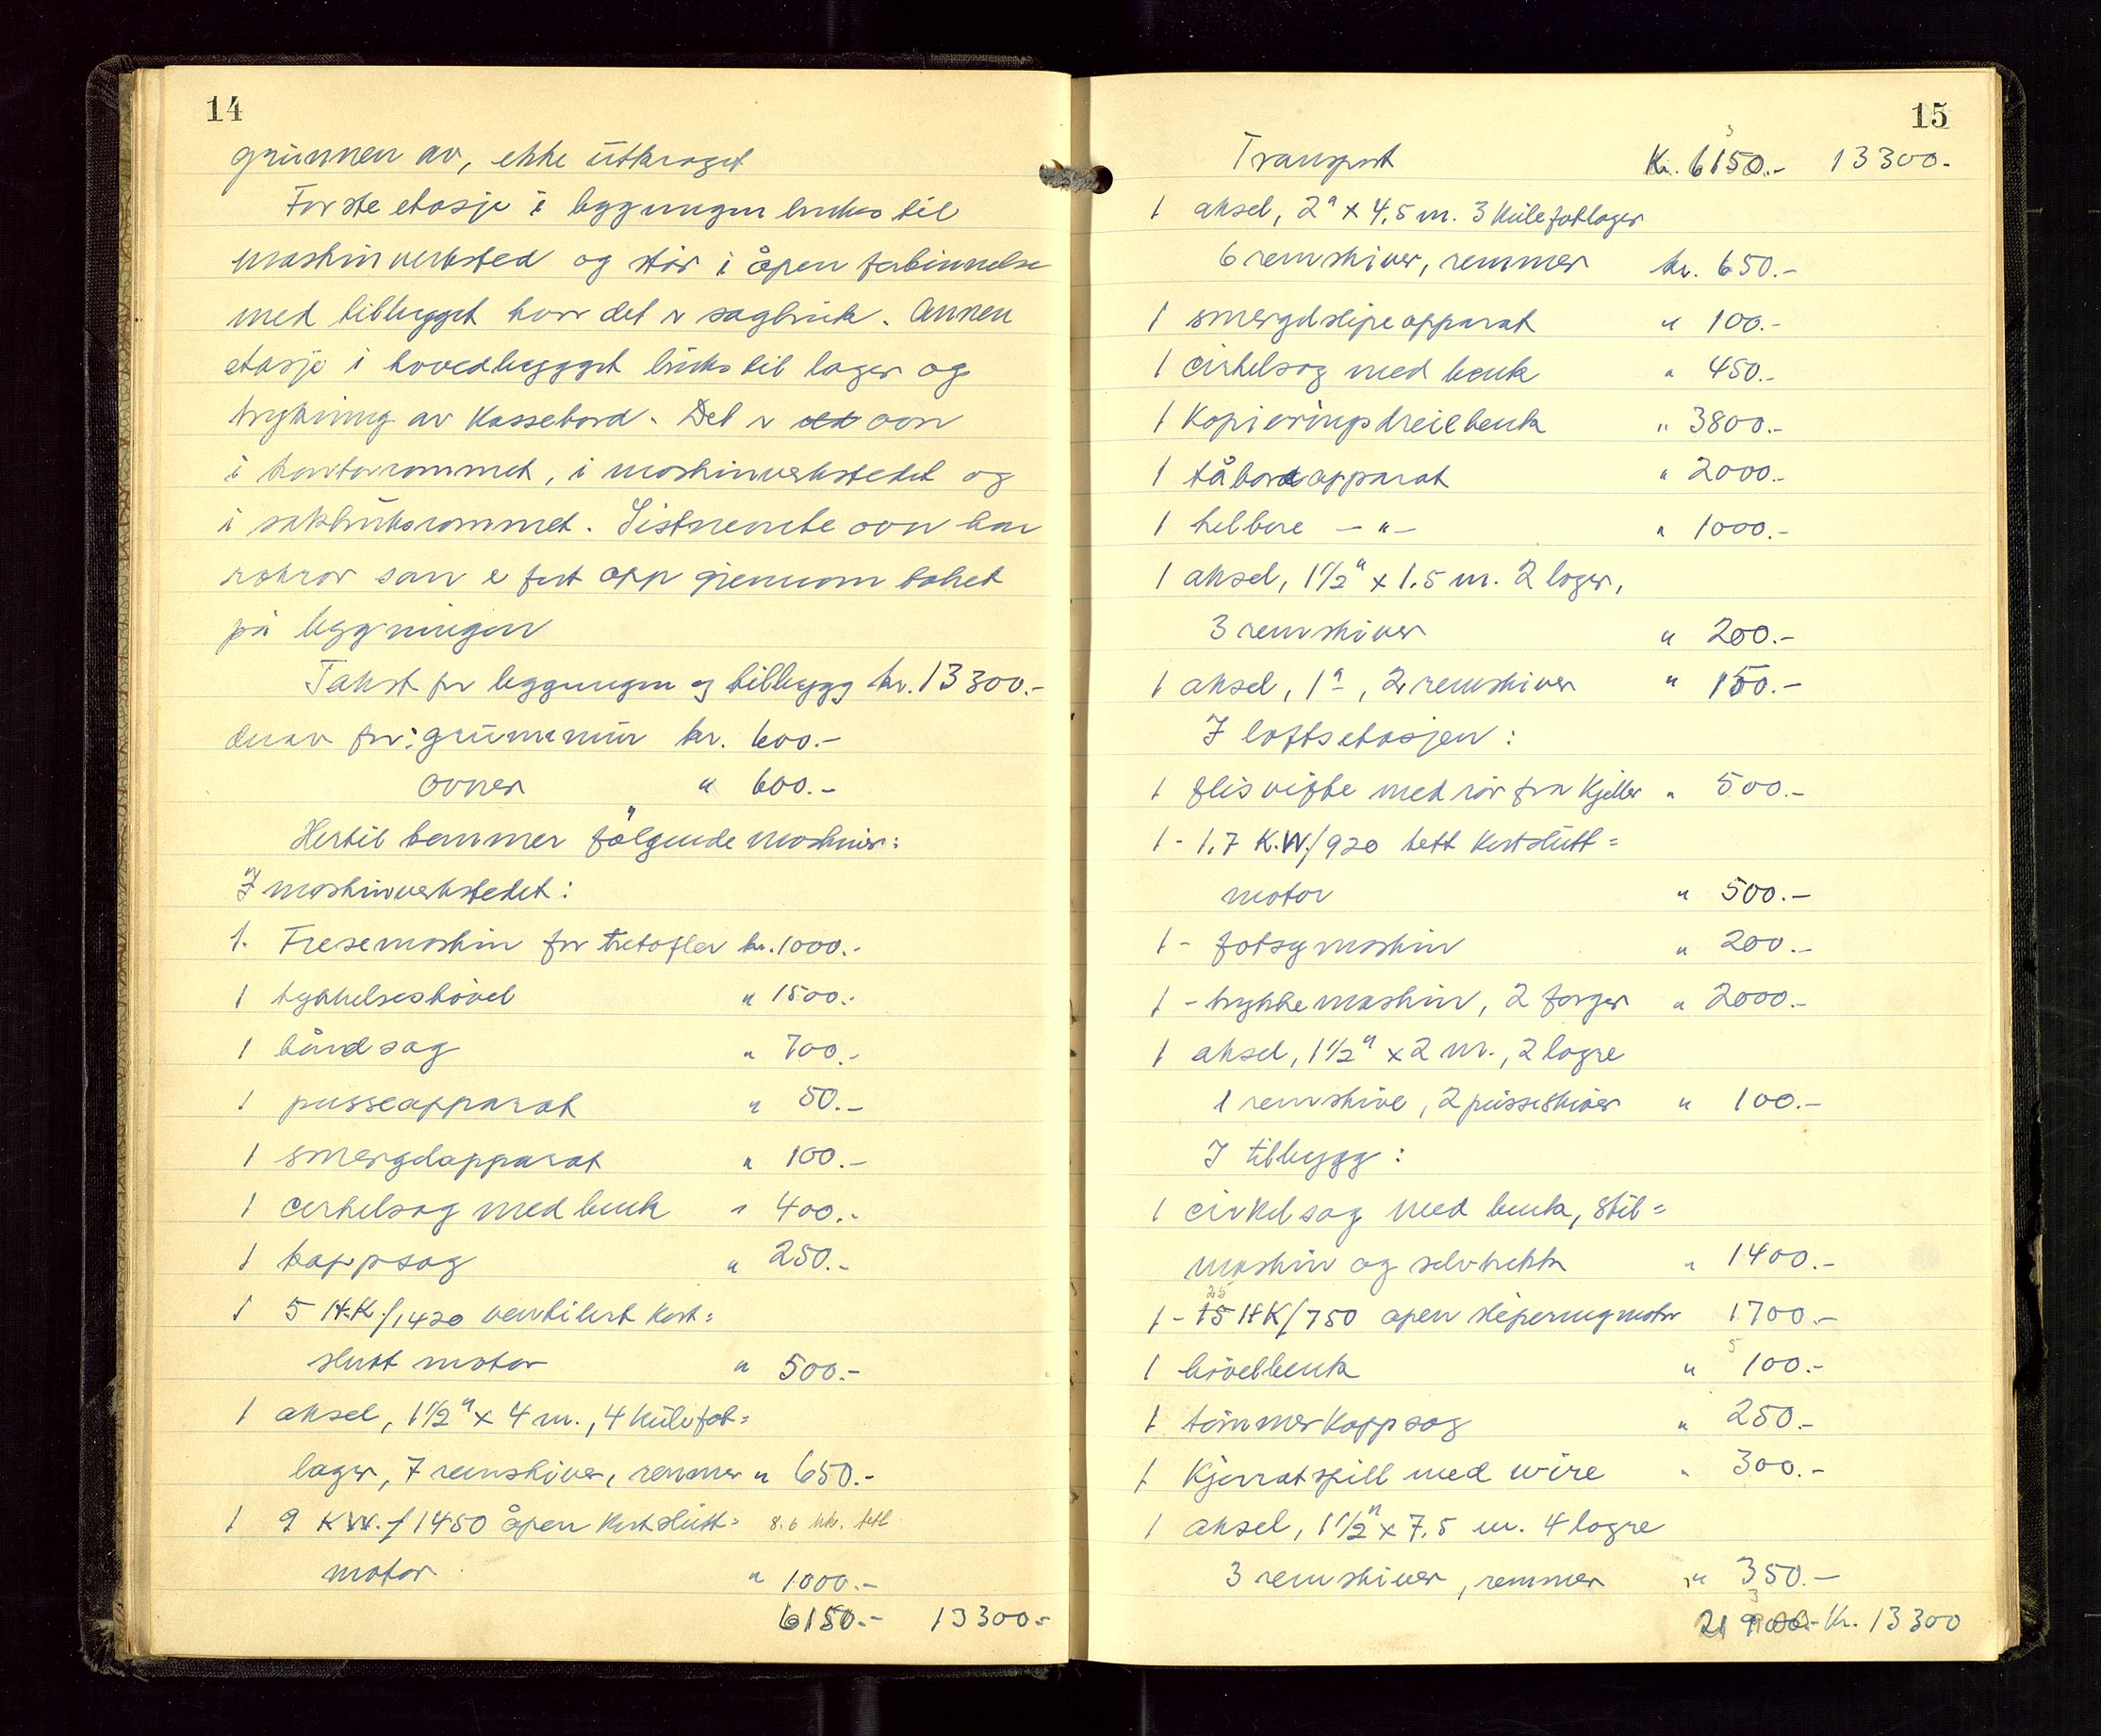 14
grunnen av, ikke utkraget
Første etasje i bygningen brukes til
maskinverksted og står i åpen forbinnelse
med tilbygget hvor det er sagbruk. Annen
etasje i hovedbygget brukes til lager og
trykning av Kassebord. Det er ovn
i kontorrommet, i maskinverkstedet og
i sakbruksrommet. Sistnevnte ovn har
rökrör som er fört opp gjennom taket
på bygningen
Takst for bygningen og tilbygg kr. 13300.-
derav for: grunnmur kr. 600.-
ovner " 600.-
Hertil kommer fölgende maskiner:
I maskinverkstedet:
1. Fresemaskin for tretøfler kr. 1000.-
1 tykkelseshövel " 1500.-
1 båndsag " 700.-
1 pusseapparat " 50.-
1 smergelapparat " 100.-
1 cirkelsag med benk " 400.-
1 kappsag " 250.-
1 5 H.K./1420 ventilert kort=
slutt motor " 500.-
1 aksel, 1 1/2" x 4 m., 4 Kulefot=
lager, 7 remskiver, remmer " 650.-
1 9 KW./1450 åpen Kortslutt= 8.6 kw. tett
motor " 1000.-
6150.- 13300.-
15
Transport Kr. 6150.- 13300.-
3
1 aksel, 2" x 4,5 m. 3 Kulefotlager
6 remskiver, remmer kr. 650.-
1 smergelslipeapparat " 100.-
1 cirkelsag med benk " 450.-
1 Kopieringsdreiebenk " 3800.-
1 tåboreapparat " 2000.-
1 helbore - " - " 1000.-
1 aksel, 1 1/2" x 1.5 m. 2 lager,
3 remskiver " 200.-
1 aksel, 1", 2 remskiver " 150.-
I loftsetasjen:
1 flisvifte med rör fra Kjeller " 500.-
1 - 1,7 K.W./920 tett Kortslutt=
motor " 500.-
1 - fotsymaskin " 200.-
1 - trykkemaskin, 2 farger " 2000.-
1 aksel, 1 1/2" x 2 m., 2 lagre
1 remskive, 2 pusseskiver " 100.-
I tilbygg:
1 cirkelsag med benk, Stil=
maskin og selvtrekk " 1400.-
25
1 - 15 HK/750 åpen sleperingmotor 1700.-
5
1 hövelbenk " 100.-
1 tömmerkappsag " 250.-
1 Kjerratspill med wire " 300.-
1 aksel, 1 1/2" x 7,5 m. 4 lagre
3 remskiver, remmer " 350.-
3
21 900.- Kr. 13300